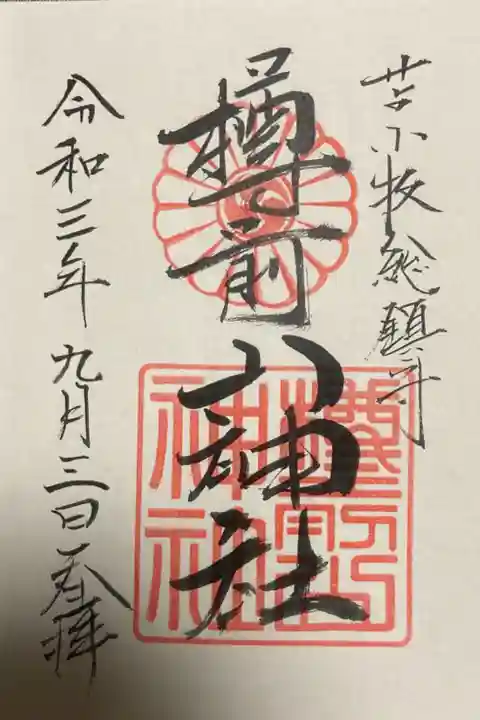 苫小牧総鎮守
樽前山神社
令和三年九月三日奉拝